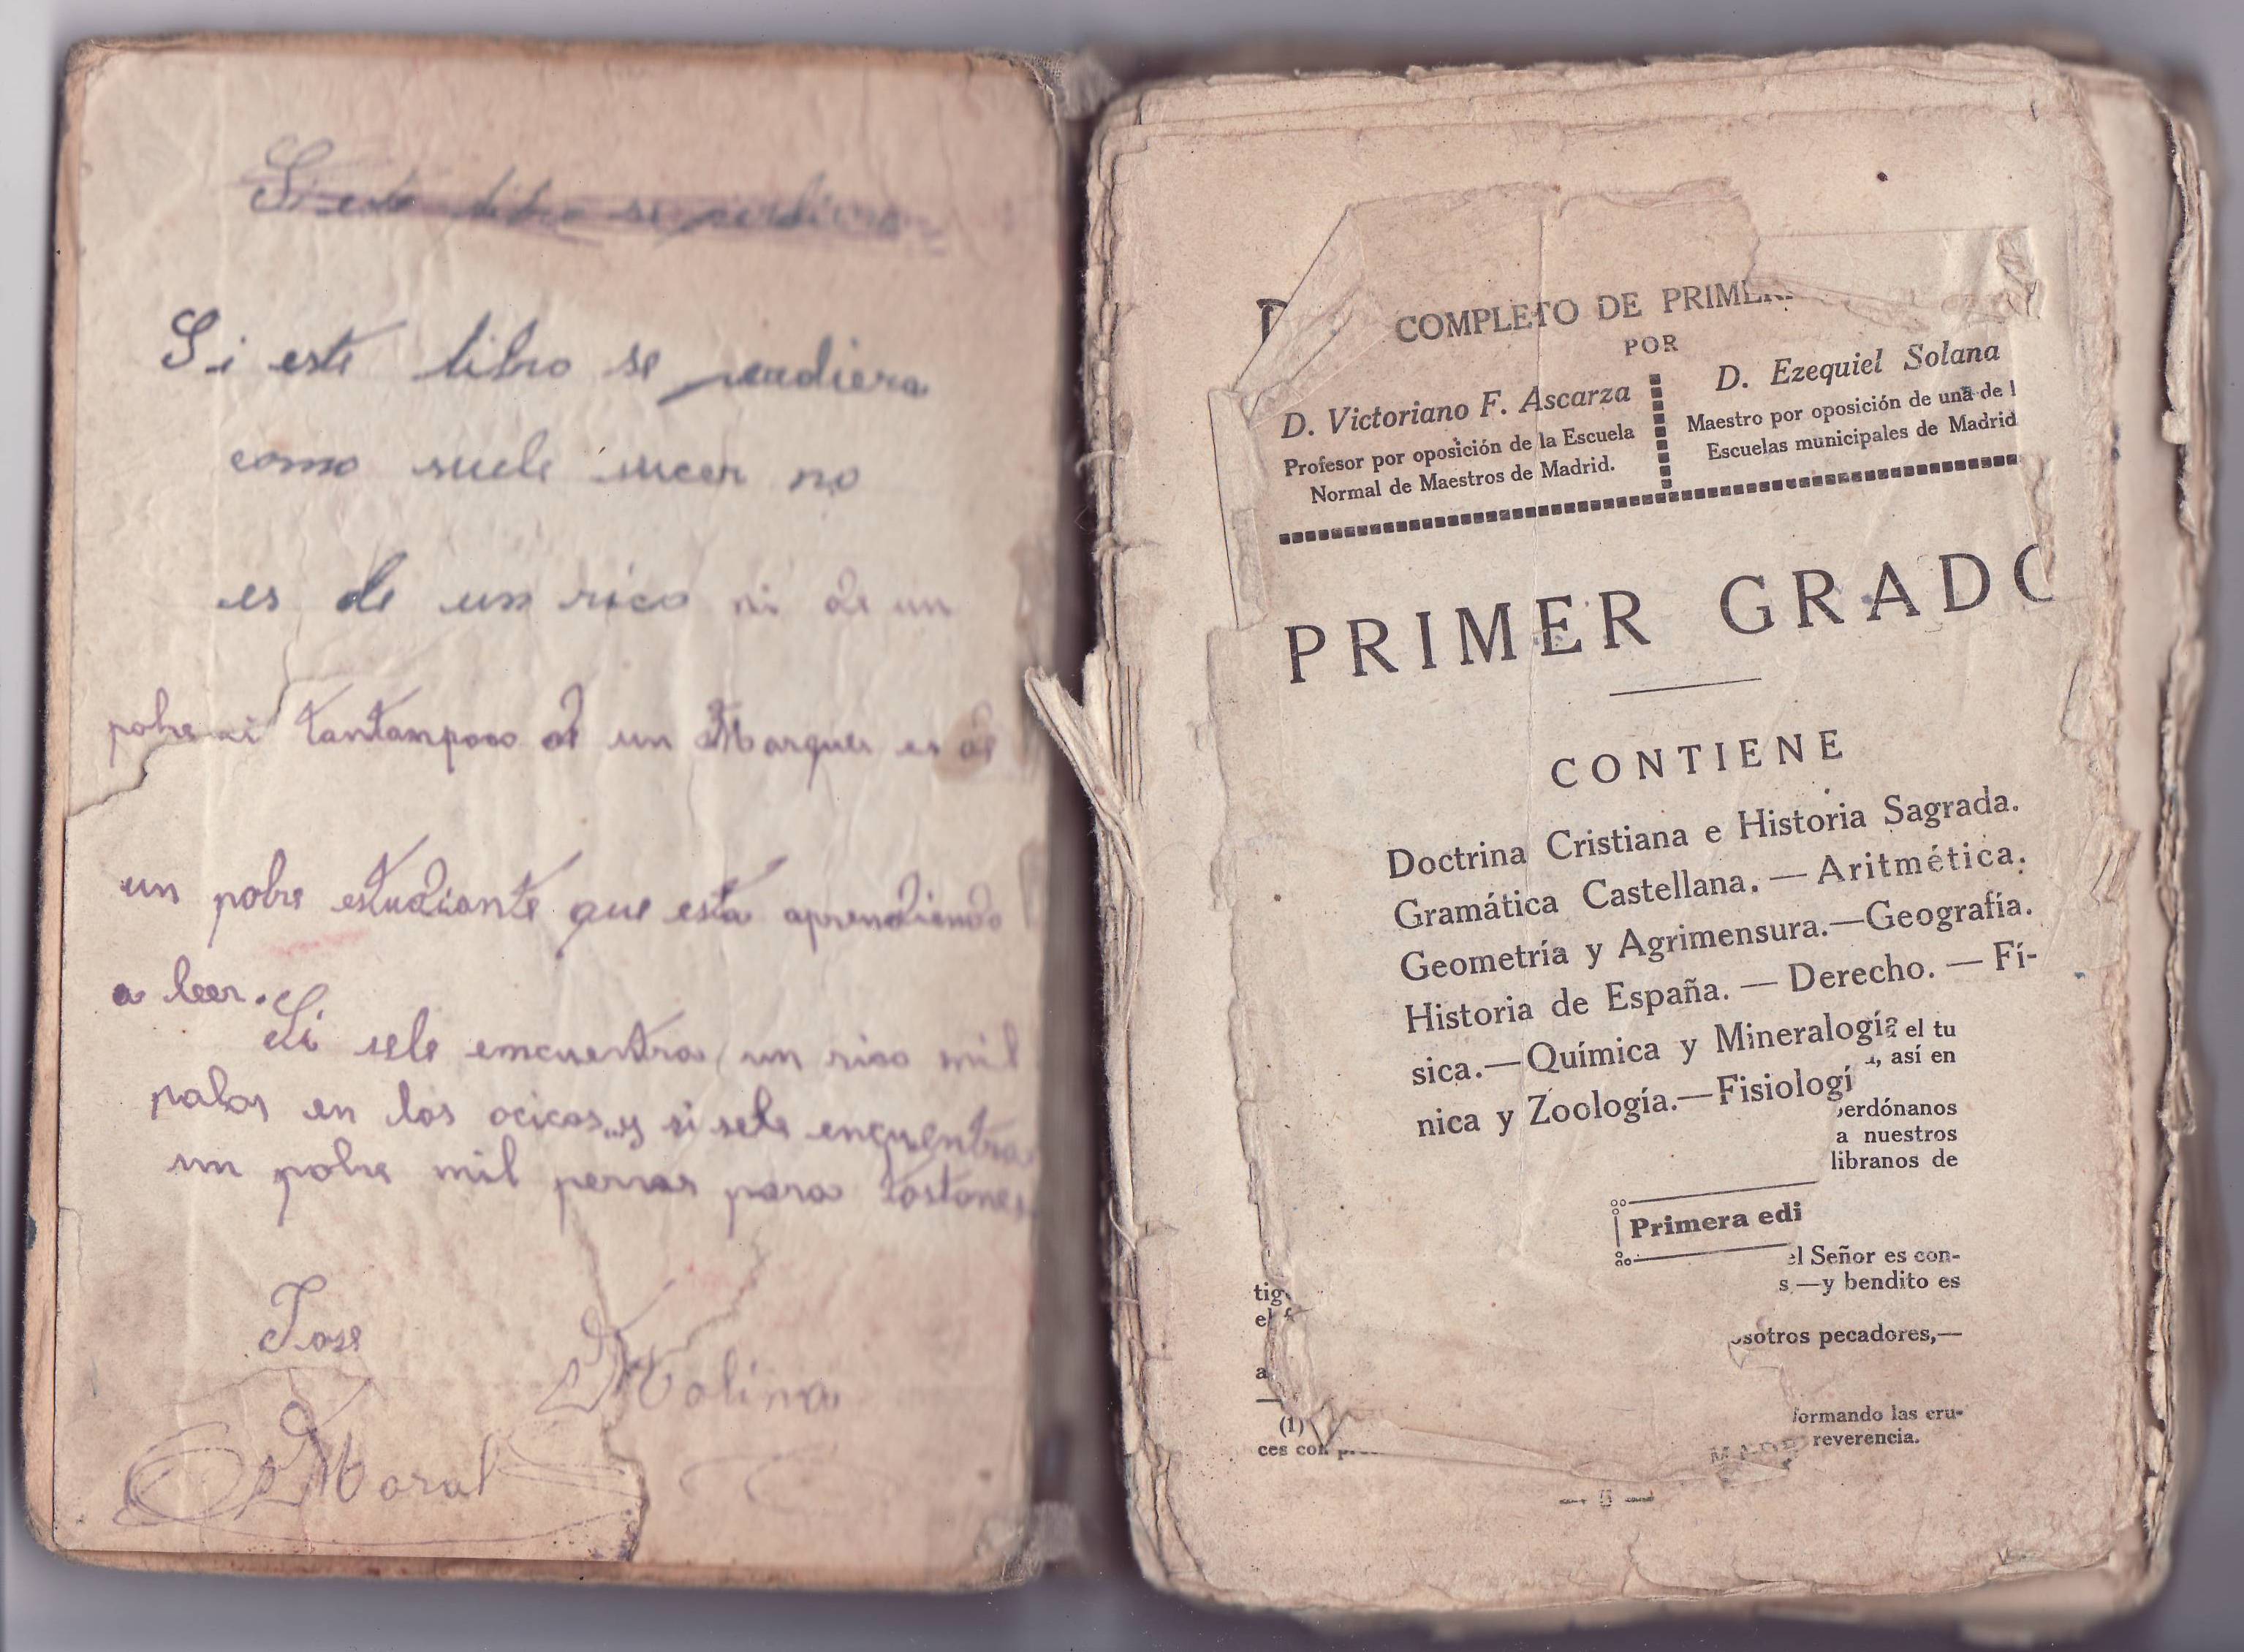 Si este libro se perdiera
Si este libro se perdiera
como suele sucer no
es de un rico ni de un
pobre ni tantampoco de un Marques es de
un pobre estudiante que esta aprendiendo
a leer.
Si sele encuentra un rico mil
palos en los ocicos y si sele encuentra
un pobre mil perras para tostones
Jose
Molina
Moral
COMPLETO DE PRIMER
POR
D. Victoriano F. Ascarza
Profesor por oposición de la Escuela
Normal de Maestros de Madrid.
D. Ezequiel Solana
Maestro por oposición de una de l
Escuelas municipales de Madrid
PRIMER GRADO
CONTIENE
Doctrina Cristiana e Historia Sagrada.
Gramática Castellana. — Aritmética.
Geometría y Agrimensura.—Geografía.
Historia de España. — Derecho. — Fí-
sica.—Química y Mineralogía el tu
, así en
nica y Zoología.—Fisiologí
perdónanos
a nuestros
libranos de
Primera edi
el Señor es con-
tig s.—y bendito es
el f
osotros pecadores,—
a
(1) formando las cru-
ces con reverencia.
— 5 —